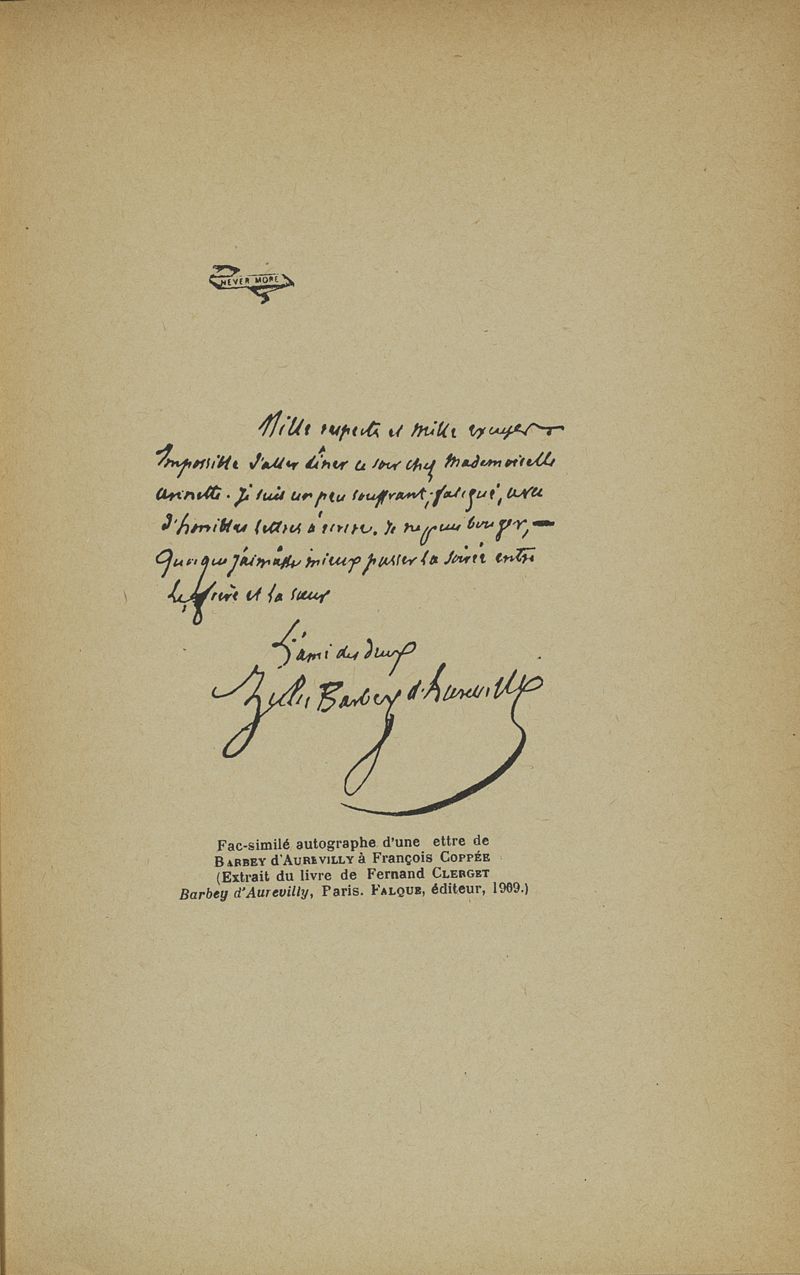 NEVER MORE
Mille respects et mille excuses
Impossible d'aller dîner ce soir chez Mademoiselle
Annette. Je suis un peu souffrant, fatigué, avec
d'horribles lettres à écrire. Je ne puis bouger, —
Quoique j'aimasse mieux passer la soirée entre
le frère et la sœur
L'ami des deux
Jules Barbey d'Aurevilly
Fac-similé autographe d'une ettre de
BARBEY d'AUREVILLY à François COPPÉE
(Extrait du livre de Fernand CLERGET
Barbey d'Aurevilly, Paris. FALQUE, éditeur, 1909.)